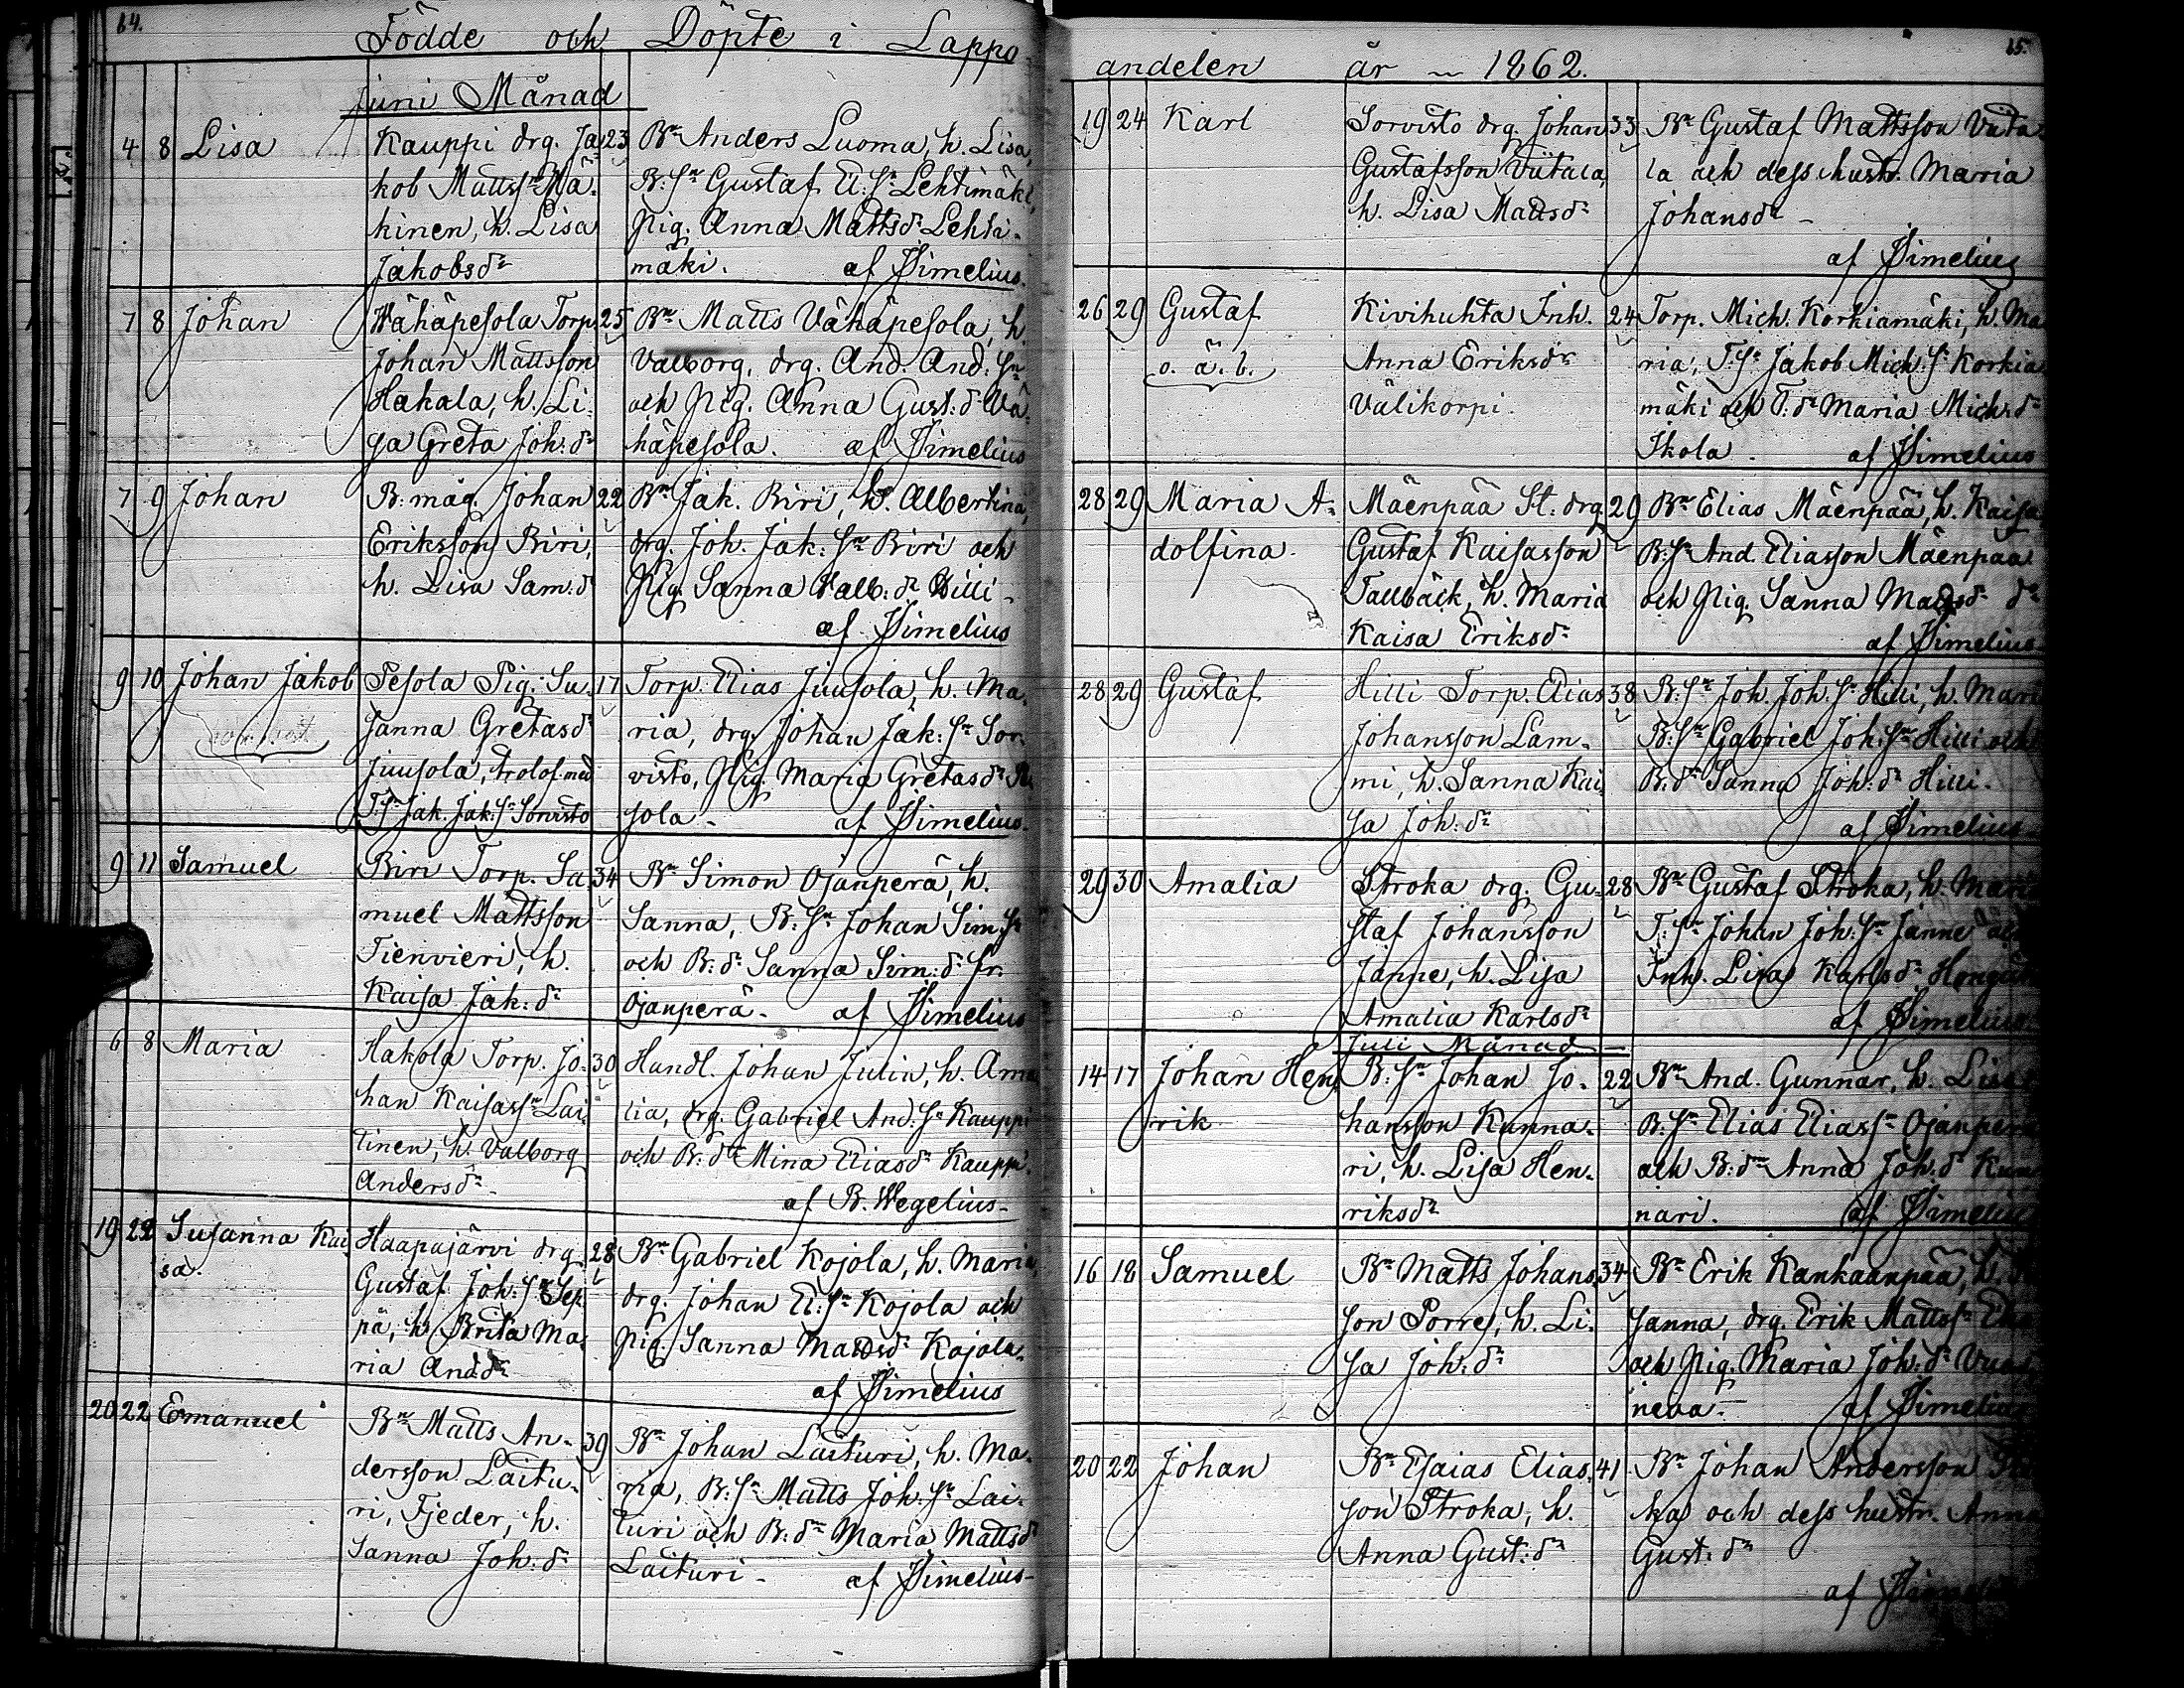 64.
Födde och Döpte i Lappo
Juni Månad
4 8 Lisa
Kauppi drg. Ja-
kob Mattss:n Mä-
kinen, h. Lisa
Jakobsd:r
23
B:n Anders Luoma, h. Lisa,
B:S:n Gustaf El:S:n Lehtimäki,
Pig. Anna Mattsd:r Lehti-
mäki. af Simelius.
7 8 Johan
Wähäpesola Torp.
Johan Mattsson
Hakala, h. Li-
sa Greta Joh:d:r
25
B:n Matts Vähäpesola, h.
Valborg, drg. And. And:S:n
och Pig. Anna Gust:d:r Vä-
häpesola. af Simelius
7 9 Johan
B:måg. Johan
Eriksson Biri,
h. Lisa Sam:d:r
22
B:n Jak. Biri, h. Albertina,
drg. Joh. Jak:S:n Biri och
Pig. Sanna Valb:d:r Hilli
af Simelius
9 10 Johan Jakob
Pesola Pig. Su-
sanna Gretasd:r
Juusola, trolof. med
T:S:n Jak. Jak:S:n Sorvisto
17
Torp. Elias Juusola, h. Ma-
ria, drg. Johan Jak:S:n Sor-
visto, Pig. Maria Gretasd:r Pe-
sola. af Simelius.
9 11 Samuel
Biri Torp. Sa-
muel Mattsson
Tienvieri, h.
Kaisa Jak:d:r
34
B:n Simon Ojanperä, h.
Sanna, B:S:n Johan Sim:S:n
och B:d:r Sanna Sim:d:r fr.
Ojanperä. af Simelius
6 8 Maria
Hakola Torp. Jo-
han Kaisass:n Lai-
tinen, h. Valborg
Andersd:r
30
Handl. Johan Julin, h. Ama
lia, drg. Gabriel And:S:n Kauppi
och B:d:r Mina Eliasd:r Kauppi.
af B. Wegelius
19 22 Susanna Kai
sa.
Haapajärvi drg.
Gustaf Joh:S:n Sep-
pä, h. Brita Ma-
ria And:d:r
28
B:n Gabriel Kojola, h. Maria,
drg. Johan El:S:n Kojola och
Pig. Sanna Mattsd:r Kojola.
af Simelius
20 22 Emanuel
B:n Matts An-
dersson Laitu-
ri, Fjeder, h.
Sanna Joh:d:r
39
B:n Johan Laituri, h. Ma-
ria, B:S:n Matts Joh:S:n Lai-
turi och B:d:r Maria Mattsd:r
Laituri. af Simelius
65.
andelen år 1862.
19 24 Karl
Sorvisto drg. Johan
Gustafsson Viitala,
h. Lisa Mattsd:r
33
B:n Gustaf Mattsson Viita
la och dess hustr. Maria
Johansd:r
af Simelius
26 29 Gustaf
o. ä. b.
Kivihuhta Inh.
Anna Eriksd:r
Välikorpi.
24
Torp. Mich. Korkiamäki, h. Ma
ria, T:S:n Jakob Mich:S:n Korkia
mäki och T:d:r Maria Mich:d:r
Ikola. af Simelius
28 29 Maria A-
dolfina.
Mäenpää St. drg.
Gustaf Kaisasson
Tallbäck, h. Maria
Kaisa Eriksd:r
29
B:n Elias Mäenpää, h. Kaisa
B:S:n And. Eliasson Mäenpää
och Pig. Sanna Mattsd:r d:r
af Simelius
28 29 Gustaf
Hilli Torp. Elias
Johansson Lam-
mi, h. Sanna Kai-
sa Joh:d:r
38
B:S:n Joh. Joh:S:n Hilli, h. Mari
B:S:n Gabriel Joh:S:n Hilli och
B:d:r Sanna Joh:d:r Hilli.
af Simelius
29 30 Amalia
Stroka drg. Gu-
staf Johansson
Janne, h. Lisa
Amalia Karlsd:r
28
B:n Gustaf Stroka, h. Mari
T:S:n Johan Joh:S:n Janne och
Inh. Lisa Karlsd:r
af Simelius
Juli Månad
14 17 Johan Hen
rik
B:S:n Johan Jo-
hansson Kunna-
ri, h. Lisa Hen-
riksd:r
22
B:n And. Gunnar, h. Lisa
B:S:n Elias Eliass:n Ojanperä
och B:d:r Anna Joh:d:r Kun
nari. af Simelius
16 18 Samuel
B:n Matts Johans-
son Porre, h. Li-
sa Joh:d:r
34
B:n Erik Kankaanpää, h.
sanna, drg. Erik Mattss:n
och Pig. Maria Joh:d:r
neva. af Simelius
20 22 Johan
B:n Esaias Elias-
son Stroka, h.
Anna Gust:d:r
41
B:n Johan Andersson
ka och dess hustr. Anna
Gust:d:r
af Simelius